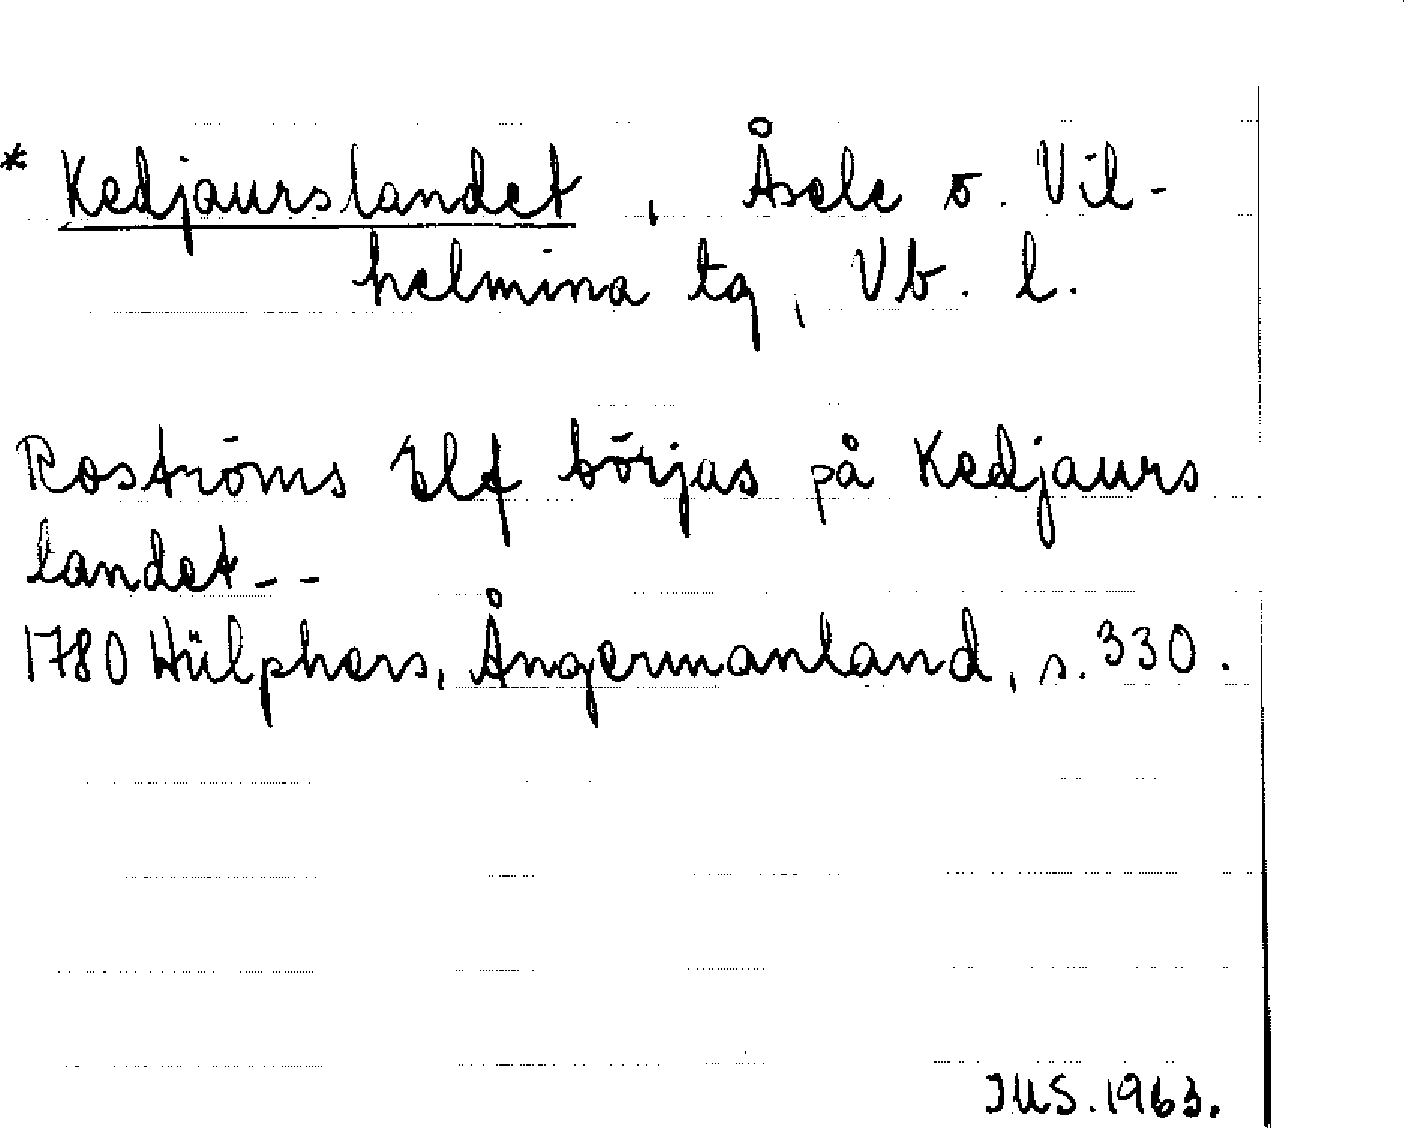 * Kedjaurslandet, Åsele o. Vil-
helmina tg, Vb. l.
Roströms Elf börjas på Kedjaurs
landet--
1780 Hülphers, Ångermanland, s. 330.
JUS. 1963.